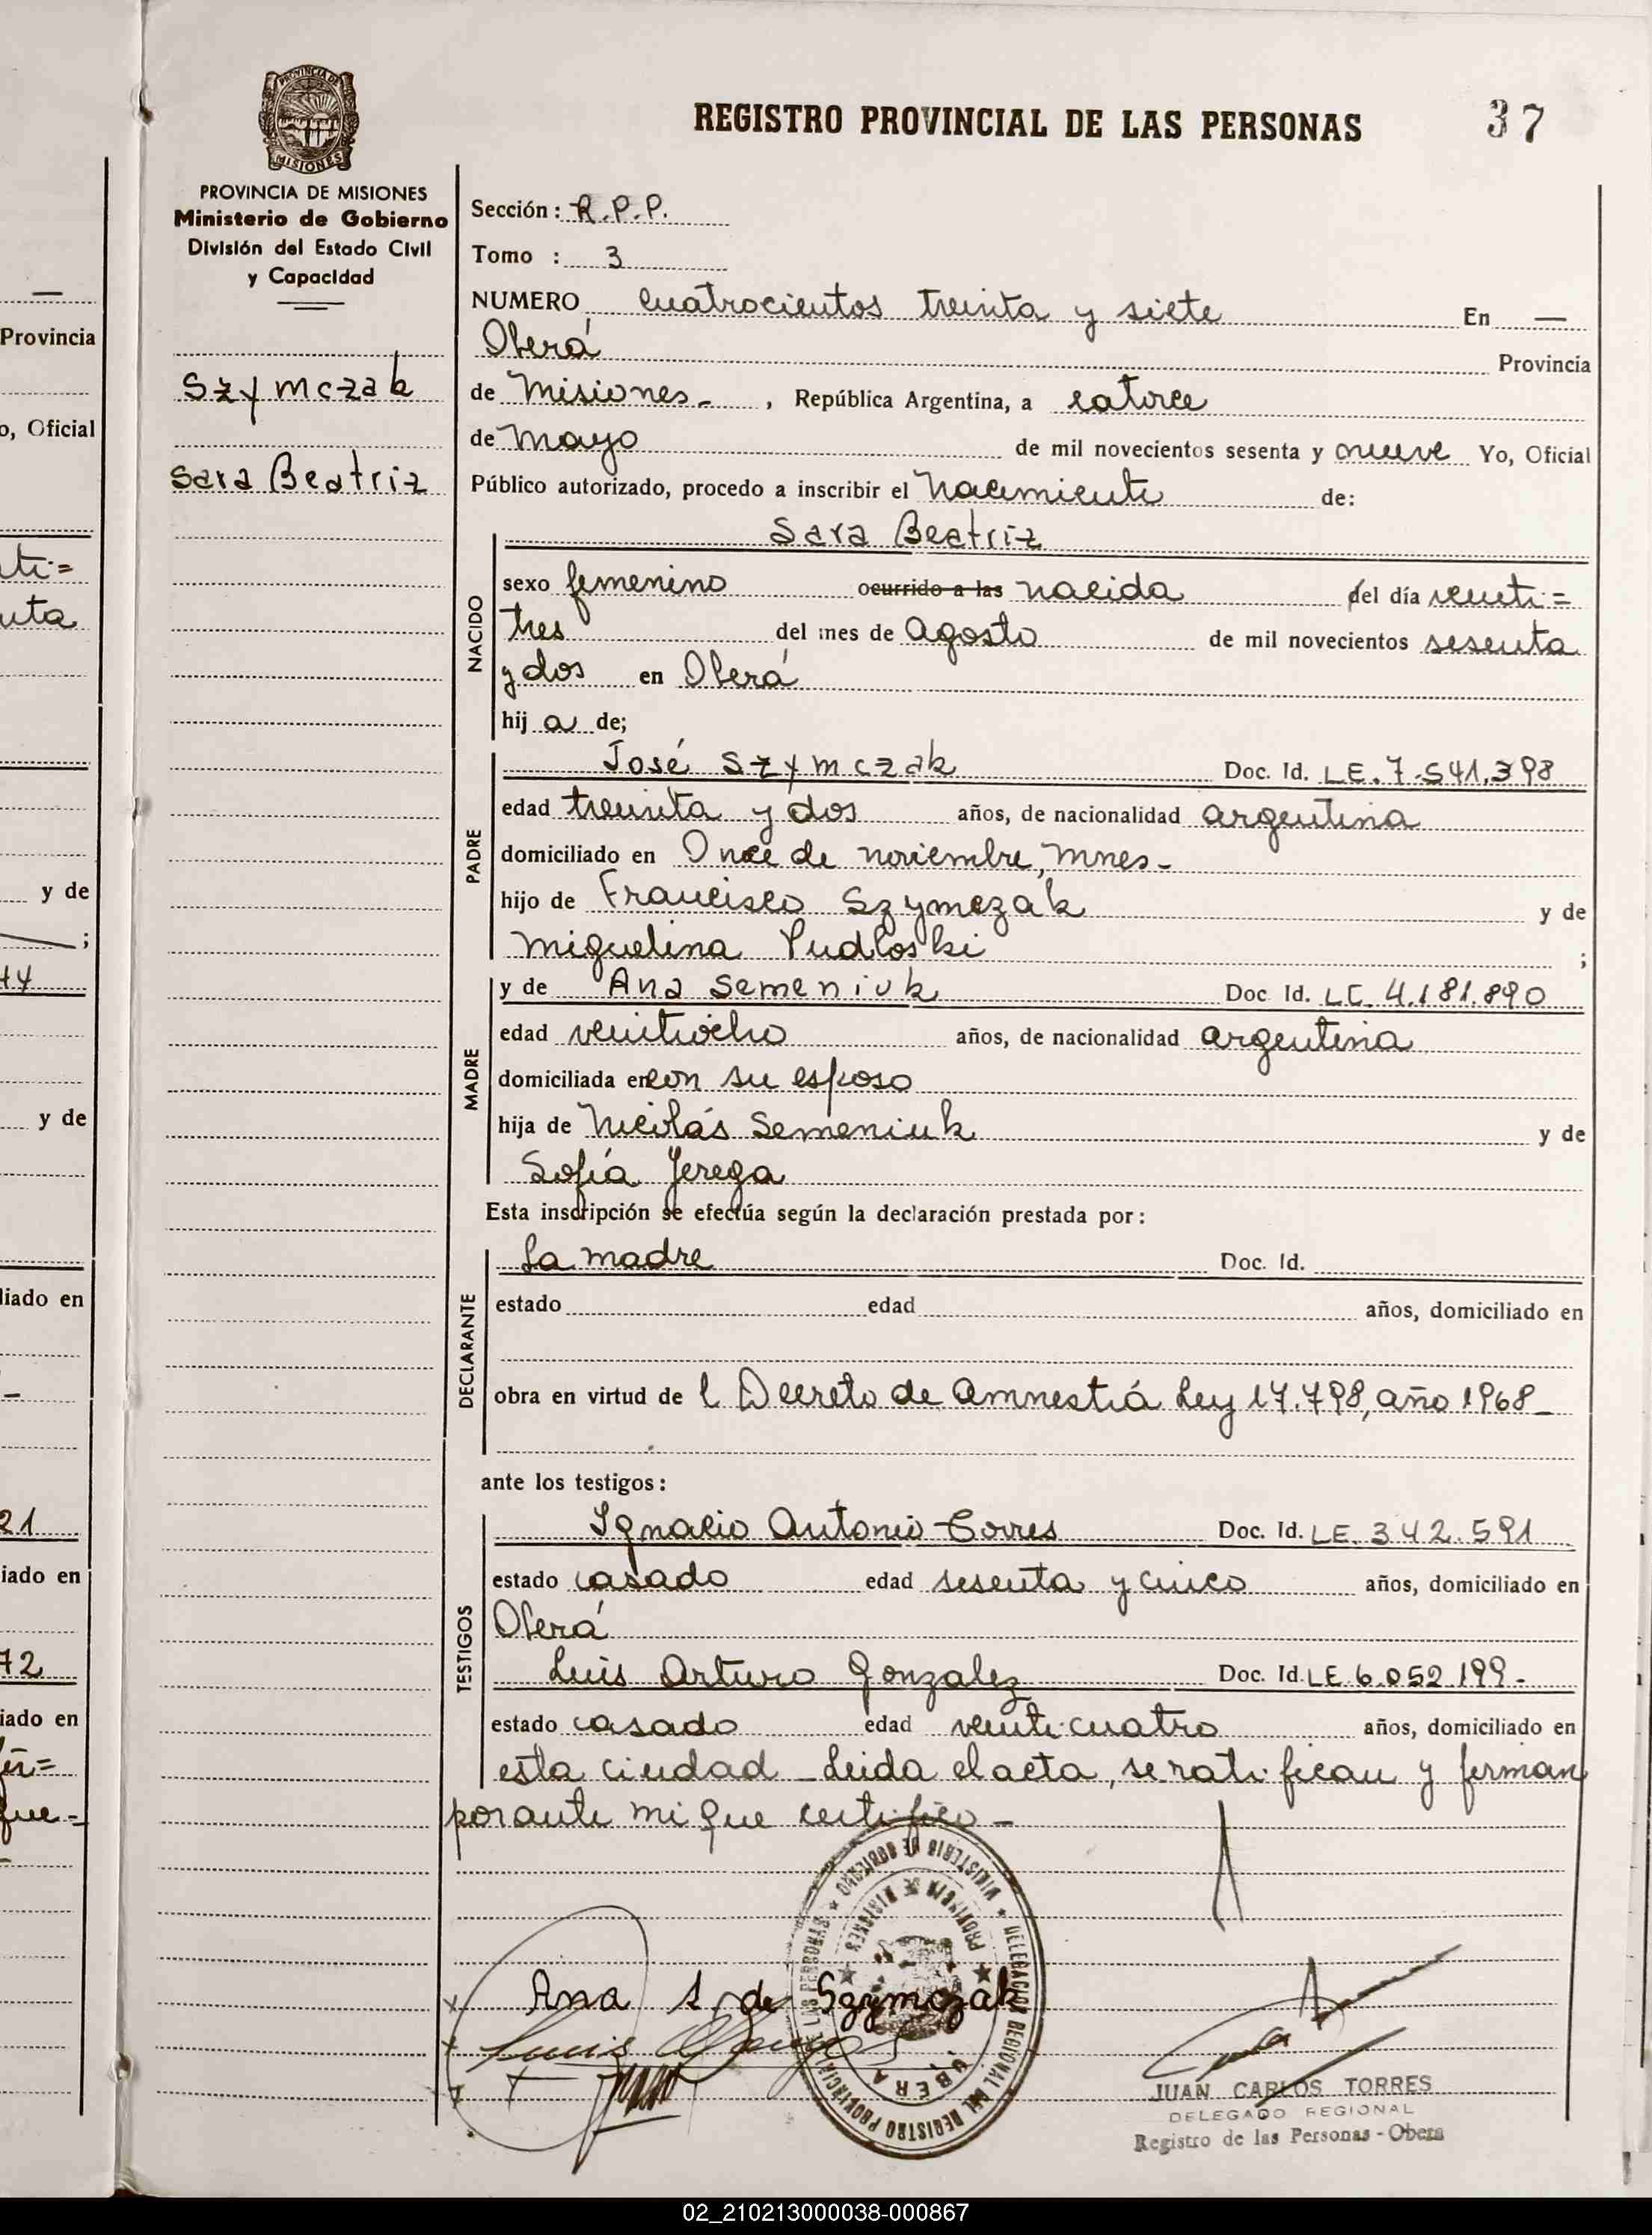 REGISTRO PROVINCIAL DE LAS PERSONAS 37
PROVINCIA DE MISIONES
MISIONES
PROVINCIA DE MISIONES
Ministerio de Gobierno
División del Estado Civil
y Capacidad
Szymczak
Sara Beatriz
Sección: R.P.P.
Tomo : 3
NUMERO cuatrocientos treinta y siete En —
Oberá Provincia
de Misiones - , República Argentina, a catorce
de mayo de mil novecientos sesenta y nueve Yo, Oficial
Público autorizado, procedo a inscribir el Nacimiento de:
Sara Beatriz
NACIDO
sexo femenino ocurrido a las nacida del día veinti=
tres del mes de Agosto de mil novecientos sesenta
y dos en Oberá
hij a de;
PADRE
José Szymczak Doc. Id. L.E. 7.541.398
edad treinta y dos años, de nacionalidad argentina
domiciliado en Once de noviembre, Mnes-
hijo de Francisco Szymczak y de
Miguelina Pudloski ;
MADRE
y de Ana Semeniuk Doc Id. LC. 4.181.890
edad veintiocho años, de nacionalidad argentina
domiciliada en con su esposo
hija de Nicolás Semeniuk y de
Sofía Jerega
Esta inscripción se efectúa según la declaración prestada por:
DECLARANTE
La madre Doc. Id.
estado edad años, domiciliado en
obra en virtud de l Decreto de Amnestiá Ley 17.798, año 1968-
ante los testigos:
TESTIGOS
Ignacio Antonio Torres Doc. Id. LE. 342.591
estado casado edad sesenta y cinco años, domiciliado en
Oberá
Luis Arturo Gonzalez Doc. Id. LE. 6.052.199-
estado casado edad veinticuatro años, domiciliado en
esta ciudad - Leida el acta, se ratifican y firman
por ante mi que certifico -
Ana S. de Szymczak
MINISTERIO DE GOBIERNO
DELEGACION REGIONAL DEL REGISTRO PROVINCIAL DE LAS PERSONAS
PROVINCIA DE MISIONES
OBERA
JUAN CARLOS TORRES
DELEGADO REGIONAL
Registro de las Personas - Obera
Provincia
o, Oficial
ti=
nta
y de
;
44
y de
liado en
21
iado en
72
iado en
que=
02_210213000038-000867